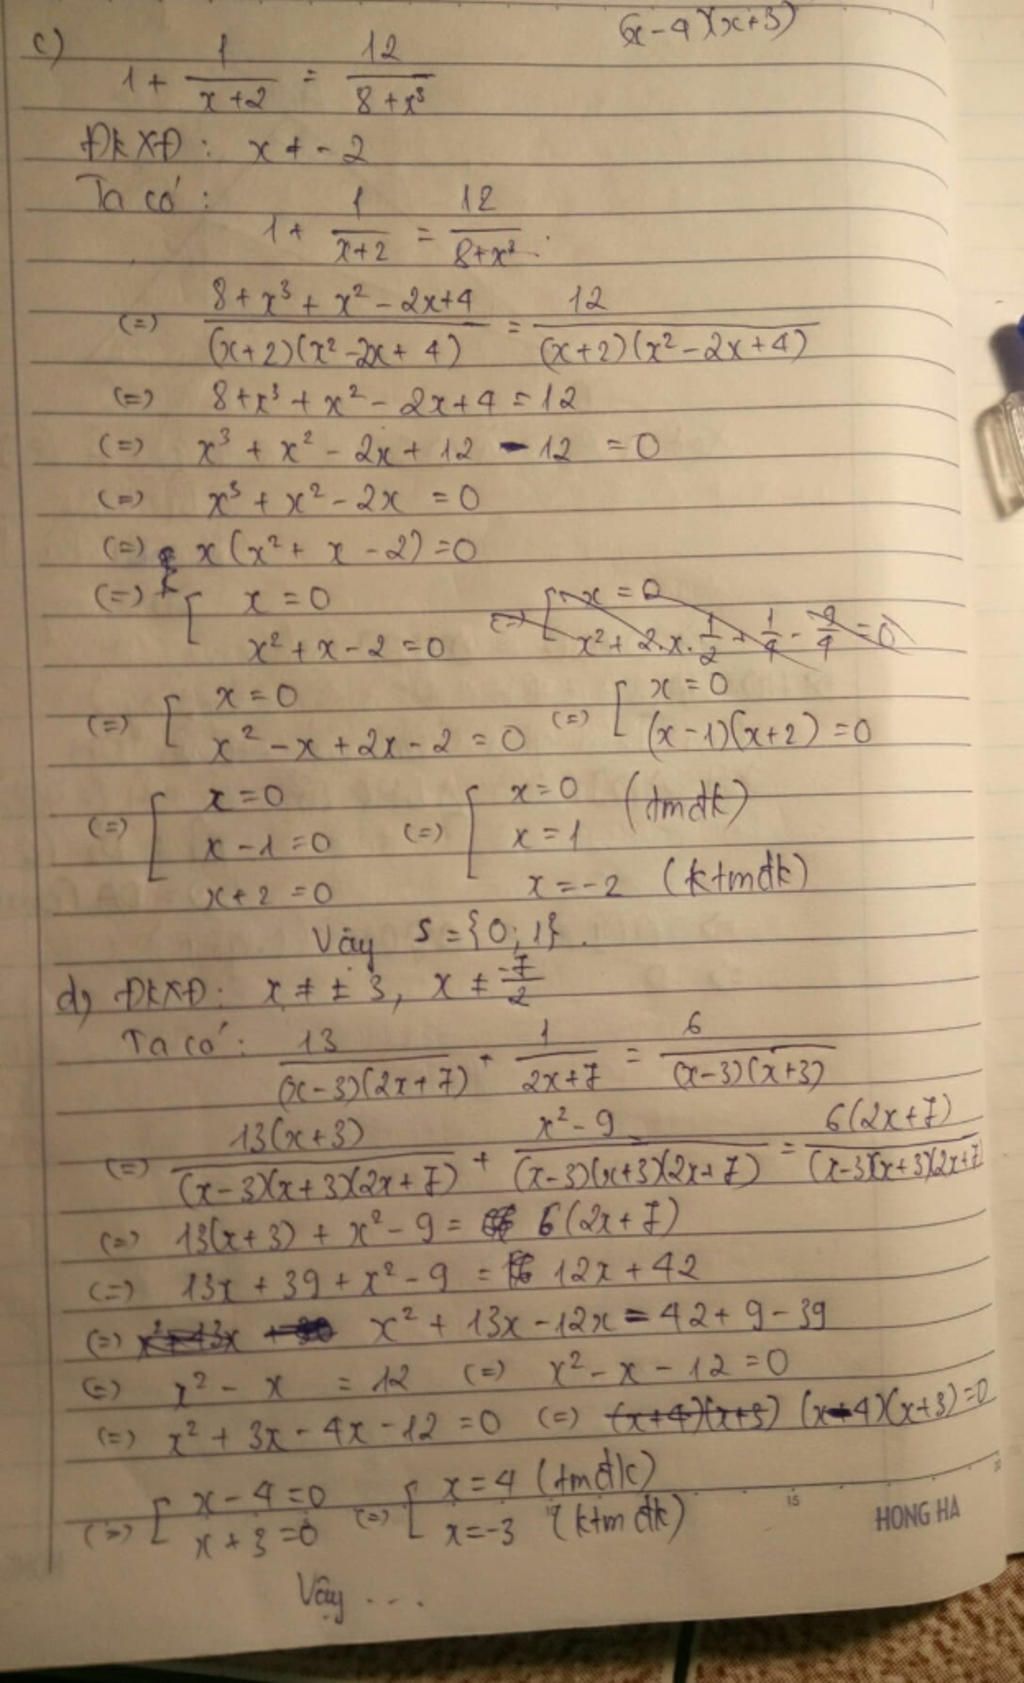 (x-4)(x+3)
c)
1 + 1/(x+2) = 12/(8+x³)
ĐKXĐ: x ≠ -2
Ta có:
1 + 1/(x+2) = 12/(8+x³).
(=) (8+x³+x²-2x+4)/((x+2)(x²-2x+4)) = 12/((x+2)(x²-2x+4))
(=) 8+x³+x²-2x+4=12
(=) x³+x²-2x+12-12=0
(=) x³+x²-2x=0
(=) x(x²+x-2)=0
(=) [ x=0 ; x²+x-2=0 (=) [ x=0 ; x²+2.x.1/2+1/4-9/4=0
(=) [ x=0 ; x²-x+2x-2=0 (=) [ x=0 ; (x-1)(x+2)=0
(=) [ x=0 ; x-1=0 ; x+2=0 (=) [ x=0 ; x=1 (tmđk) ; x=-2 (ktmđk)
Vậy S={0;1}.
d) ĐKXĐ: x ≠ ±3, x ≠ -7/2
Ta có: 13/((x-3)(2x+7)) + 1/(2x+7) = 6/((x-3)(x+3))
(=) 13(x+3)/((x-3)(x+3)(2x+7)) + (x²-9)/((x-3)(x+3)(2x+7)) = 6(2x+7)/((x-3)(x+3)(2x+7))
(=) 13(x+3)+x²-9=6(2x+7)
(=) 13x+39+x²-9=12x+42
(=) x²+13x-12x=42+9-39
(=) x²-x=12 (=) x²-x-12=0
(=) x²+3x-4x-12=0 (=) (x+4)(x+3) (x-4)(x+3)=0
(=) [ x-4=0 ; x+3=0 (=) [ x=4 (tmđk) ; x=-3 (ktmđk)
15
HONG HA
Vậy ...